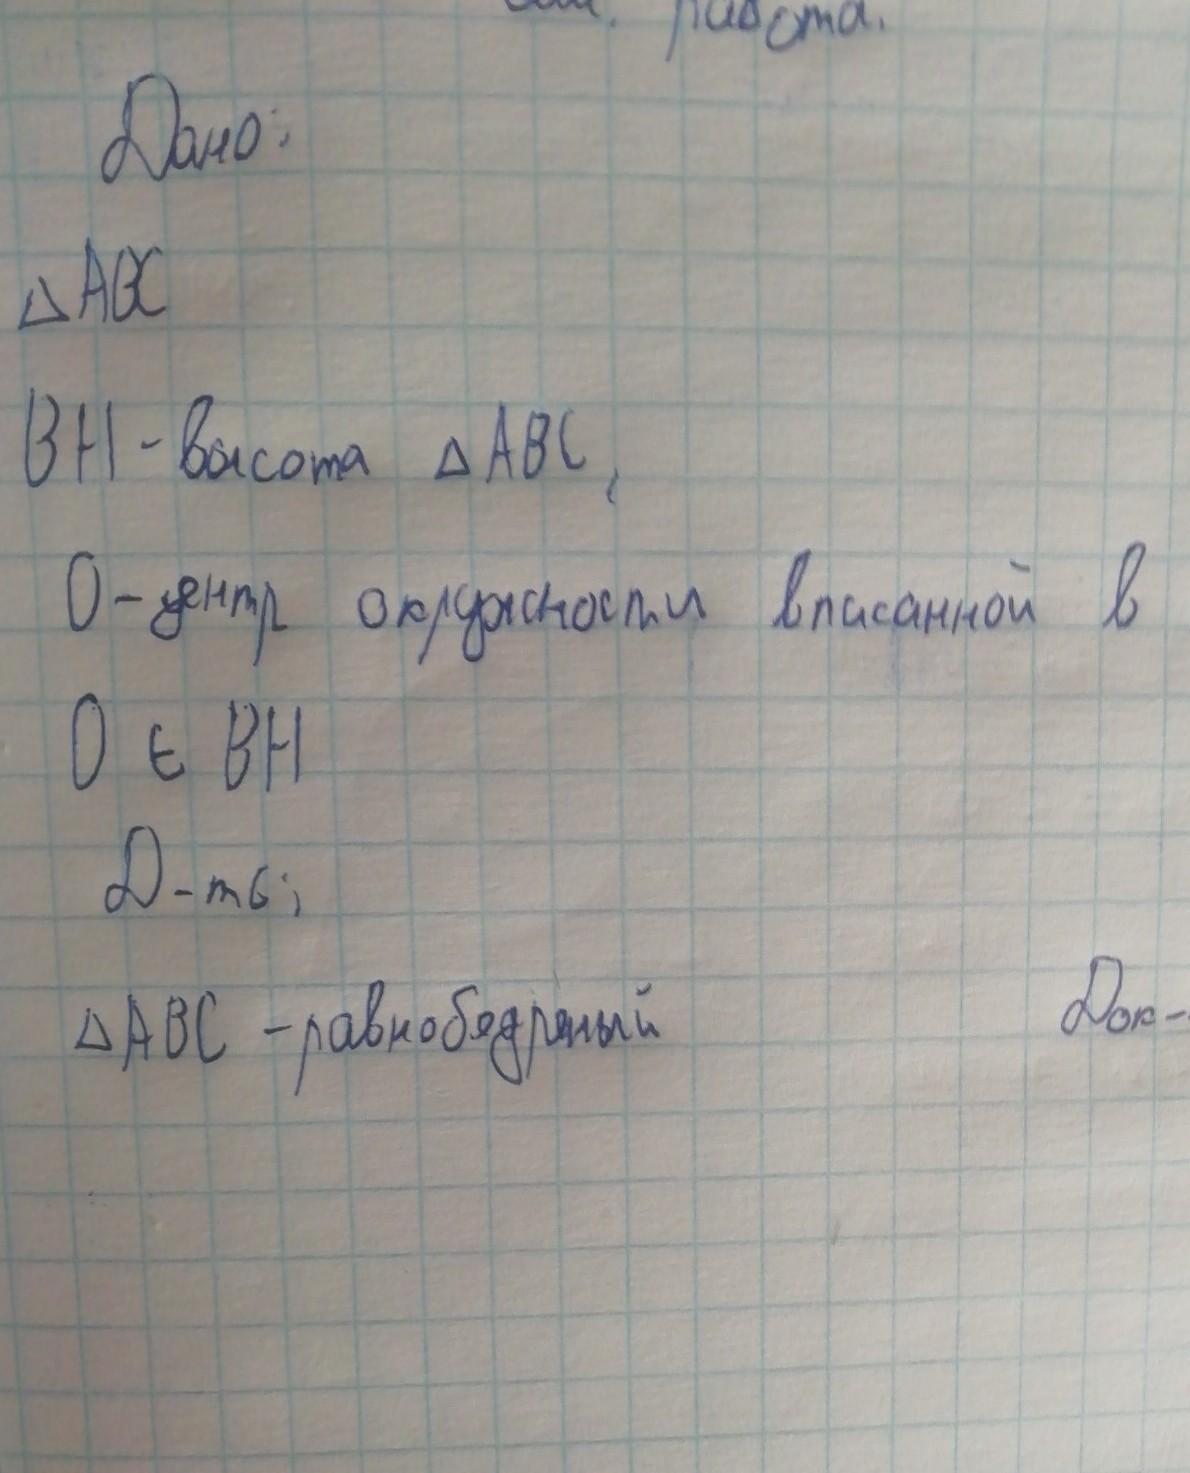 работа.
Дано:
△ABC
BH - высота △ABC,
O - центр окружности вписанной в
O ∈ BH
Д-ть:
△ABC - равнобедреный
Док-